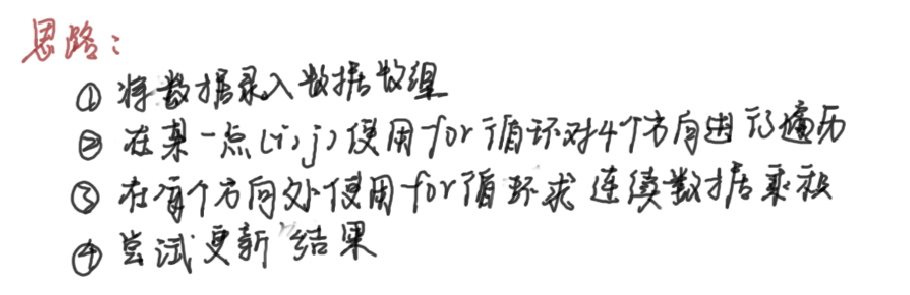 思路：
① 将数据录入数据数组
② 在某一点(i,j)使用for循环对4个方向进行遍历
③ 在每个方向处使用for循环求连续数据乘积
④ 尝试更新"结果